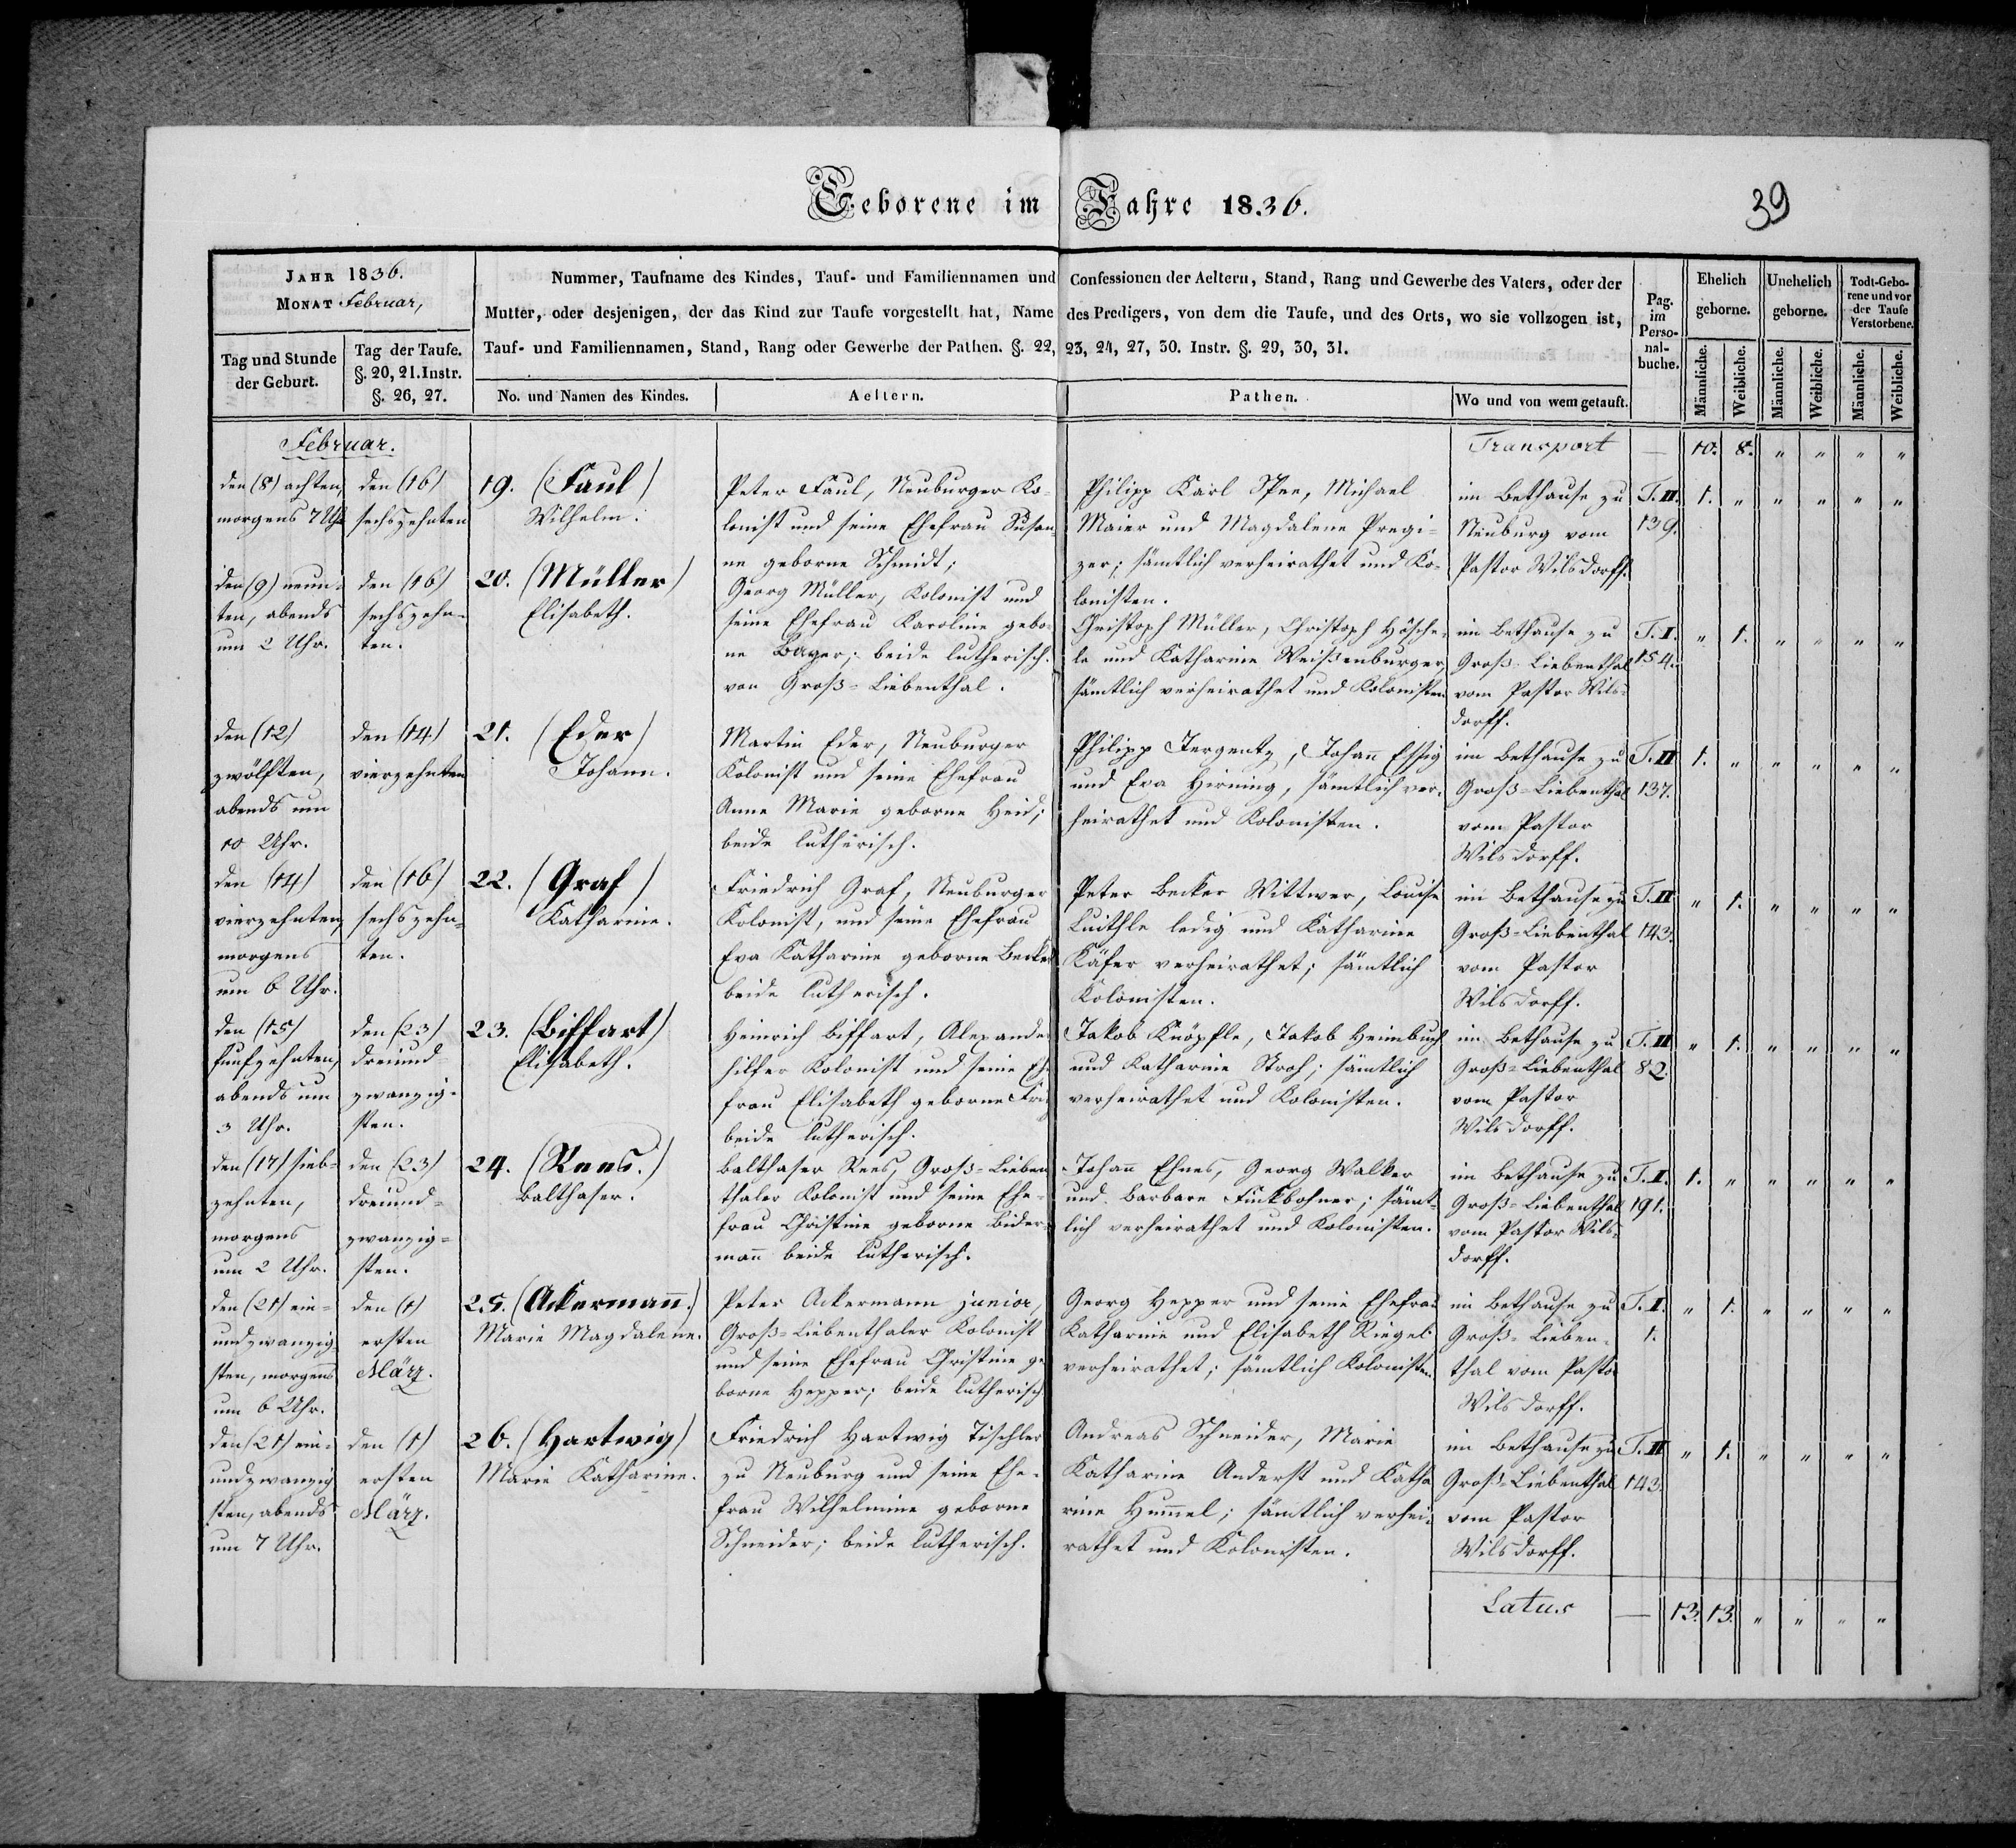 Geborene im Jahre 1836.
39
JAHR 1836.
MONAT Februar,
Tag und Stunde
der Geburt.
Tag der Taufe.
§. 20, 21. Instr.
§. 26, 27.
Nummer, Taufname des Kindes, Tauf- und Familiennamen und Confessionen der Aeltern, Stand, Rang und Gewerbe des Vaters, oder der
Mutter, oder desjenigen, der das Kind zur Taufe vorgestellt hat, Name des Predigers, von dem die Taufe, und des Orts, wo sie vollzogen ist,
Tauf- und Familiennamen, Stand, Rang oder Gewerbe der Pathen. §. 22, 23, 24, 27, 30. Instr. §. 29, 30, 31.
No. und Namen des Kindes.
Aeltern.
Pathen.
Wo und von wem getauft.
Pag.
im
Perso-
nal-
buche.
Ehelich
geborne.
Unehelich
geborne.
Todt-Gebo-
rene und vor
der Taufe
Verstorbene.
Männliche.
Weibliche.
Männliche.
Weibliche.
Männliche.
Weibliche.
Februar.
Transport — 10. 8. " " " "
den (8) achten,
morgens 7 Uhr
den (16)
sechszehnten
19. (Faul)
Wilhelm.
Peter Faul, Neuburger Ko-
lonist und seine Ehefrau Susan-
ne geborne Schmidt;
Philipp Karl Spee, Michael
Maier und Magdalene Pregi-
zer; sämtlich verheirathet und Ko-
lonisten.
im Bethause zu
Neuburg vom
Pastor Wilsdorff.
T. II.
139.
1. " " " " "
den (9) neun-
ten, abends
um 2 Uhr.
den (16)
sechszehn-
ten.
20. (Müller)
Elisabeth.
Georg Müller, Kolonist und
seine Ehefrau Karoline gebo-
ne Bager; beide lutherisch.
von Groß-Liebenthal.
Christoph Müller, Christoph Hösche-
le und Katharine Weißenburger,
sämtlich verheirathet und Kolonisten
im Bethause zu
Groß-Liebenthal
vom Pastor Wils-
dorff.
T. I.
154.
" 1. " " " "
den (12)
zwölften,
abends um
10 Uhr.
den (14)
vierzehnten
21. (Eder)
Johann.
Martin Eder, Neuburger
Kolonist und seine Ehefrau
Anne Marie geborne Heid;
beide lutherisch.
Philipp Jergentz, Johañ Essig
und Eva Hirning, sämtlich ver-
heirathet und Kolonisten.
im Bethause zu
Groß-Liebenthal
vom Pastor
Wilsdorff.
T. II
137.
1. " " " " "
den (14)
vierzehnten,
morgens
um 6 Uhr.
den (16)
sechszehn-
ten.
22. (Graf)
Katharine.
Friedrich Graf, Neuburger
Kolonist, und seine Ehefrau
Eva Katharine geborne Becker
beide lutherisch.
Peter Becker Wittwer, Louise
Luithle ledig und Katharine
Käfer verheirathet; sämtlich
Kolonisten.
im Bethause zu
Groß-Liebenthal
vom Pastor
Wilsdorff.
T. II
143.
" 1. " " " "
den (15)
funfzehnten,
abends um
3 Uhr.
den (23)
dreiund-
zwanzig-
sten.
23. (Biffart)
Elisabeth.
Heinrich Biffart, Alexander
hilfer Kolonist und seine Ehe
frau Elisabeth geborne
beide lutherisch.
Jakob Knöpfle, Jakob Heimbuch
und Katharine Stroh; sämtlich
verheirathet und Kolonisten.
im Bethause zu
Groß-Liebenthal
vom Pastor
Wilsdorff.
T. II
82.
" 1. " " " "
den (17) sieb-
zehnten,
morgens
um 2 Uhr.
den (23)
dreiund-
zwanzig-
sten.
24. (Rees.)
Balthaser.
Balthaser Rees, Groß-Lieben
thaler Kolonist und seine Ehe-
frau Christine geborne Bider-
mañ beide lutherisch.
Johañ Ehnes, Georg Walker
und Barbara Finkbohner; sämt-
lich verheirathet und Kolonisten.
im Bethause zu
Groß-Liebenthal
vom Pastor Wils-
dorff.
T. I.
191.
1. " " " " "
den (21) ein-
undzwanzig-
sten, morgens
um 6 Uhr.
den (1)
ersten
März.
25. (Ackermañ.)
Marie Magdalene.
Peter Ackermann junior,
Groß-Liebenthaler Kolonist
und seine Ehefrau Christine ge
borne Hepper; beide lutherisch
Georg Hepper und seine Ehefrau
Katharine und Elisabeth Riegel
verheirathet; sämtlich Kolonisten.
im Bethause zu
Groß-Lieben-
thal vom Pastor
Wilsdorff.
T. I.
1.
" 1. " " " "
den (21) ein-
undzwanzig
sten, abends
um 7 Uhr.
den (1)
ersten
März.
26. (Hartwig)
Marie Katharine.
Friedrich Hartwig Tischler
zu Neuburg und seine Ehe-
frau Wilhelmine geborne
Schneider; beide lutherisch.
Andreas Schneider, Marie
Katharine Anderst und Katha
rine Hum̃el; sämtlich verhei-
rathet und Kolonisten.
im Bethause zu
Groß-Liebenthal
vom Pastor
Wilsdorff.
T. II
143.
" 1. " " " "
Latus — 13. 13. " " " "